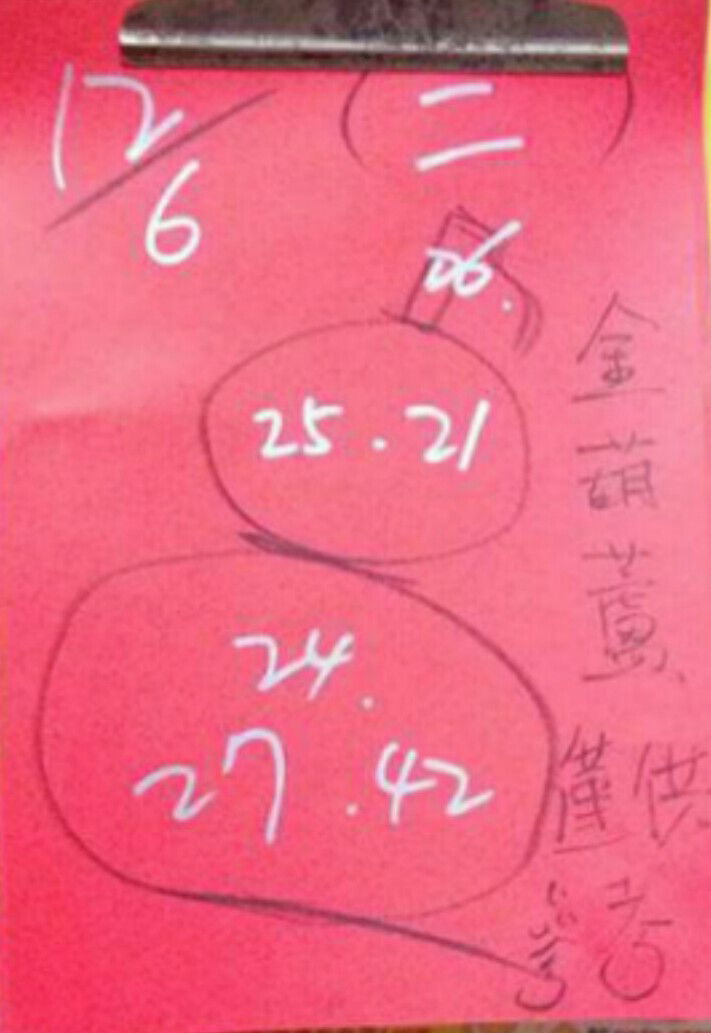 12/6
(二)
06.
25.21
24.
27.42
金葫蘆
僅供
參考